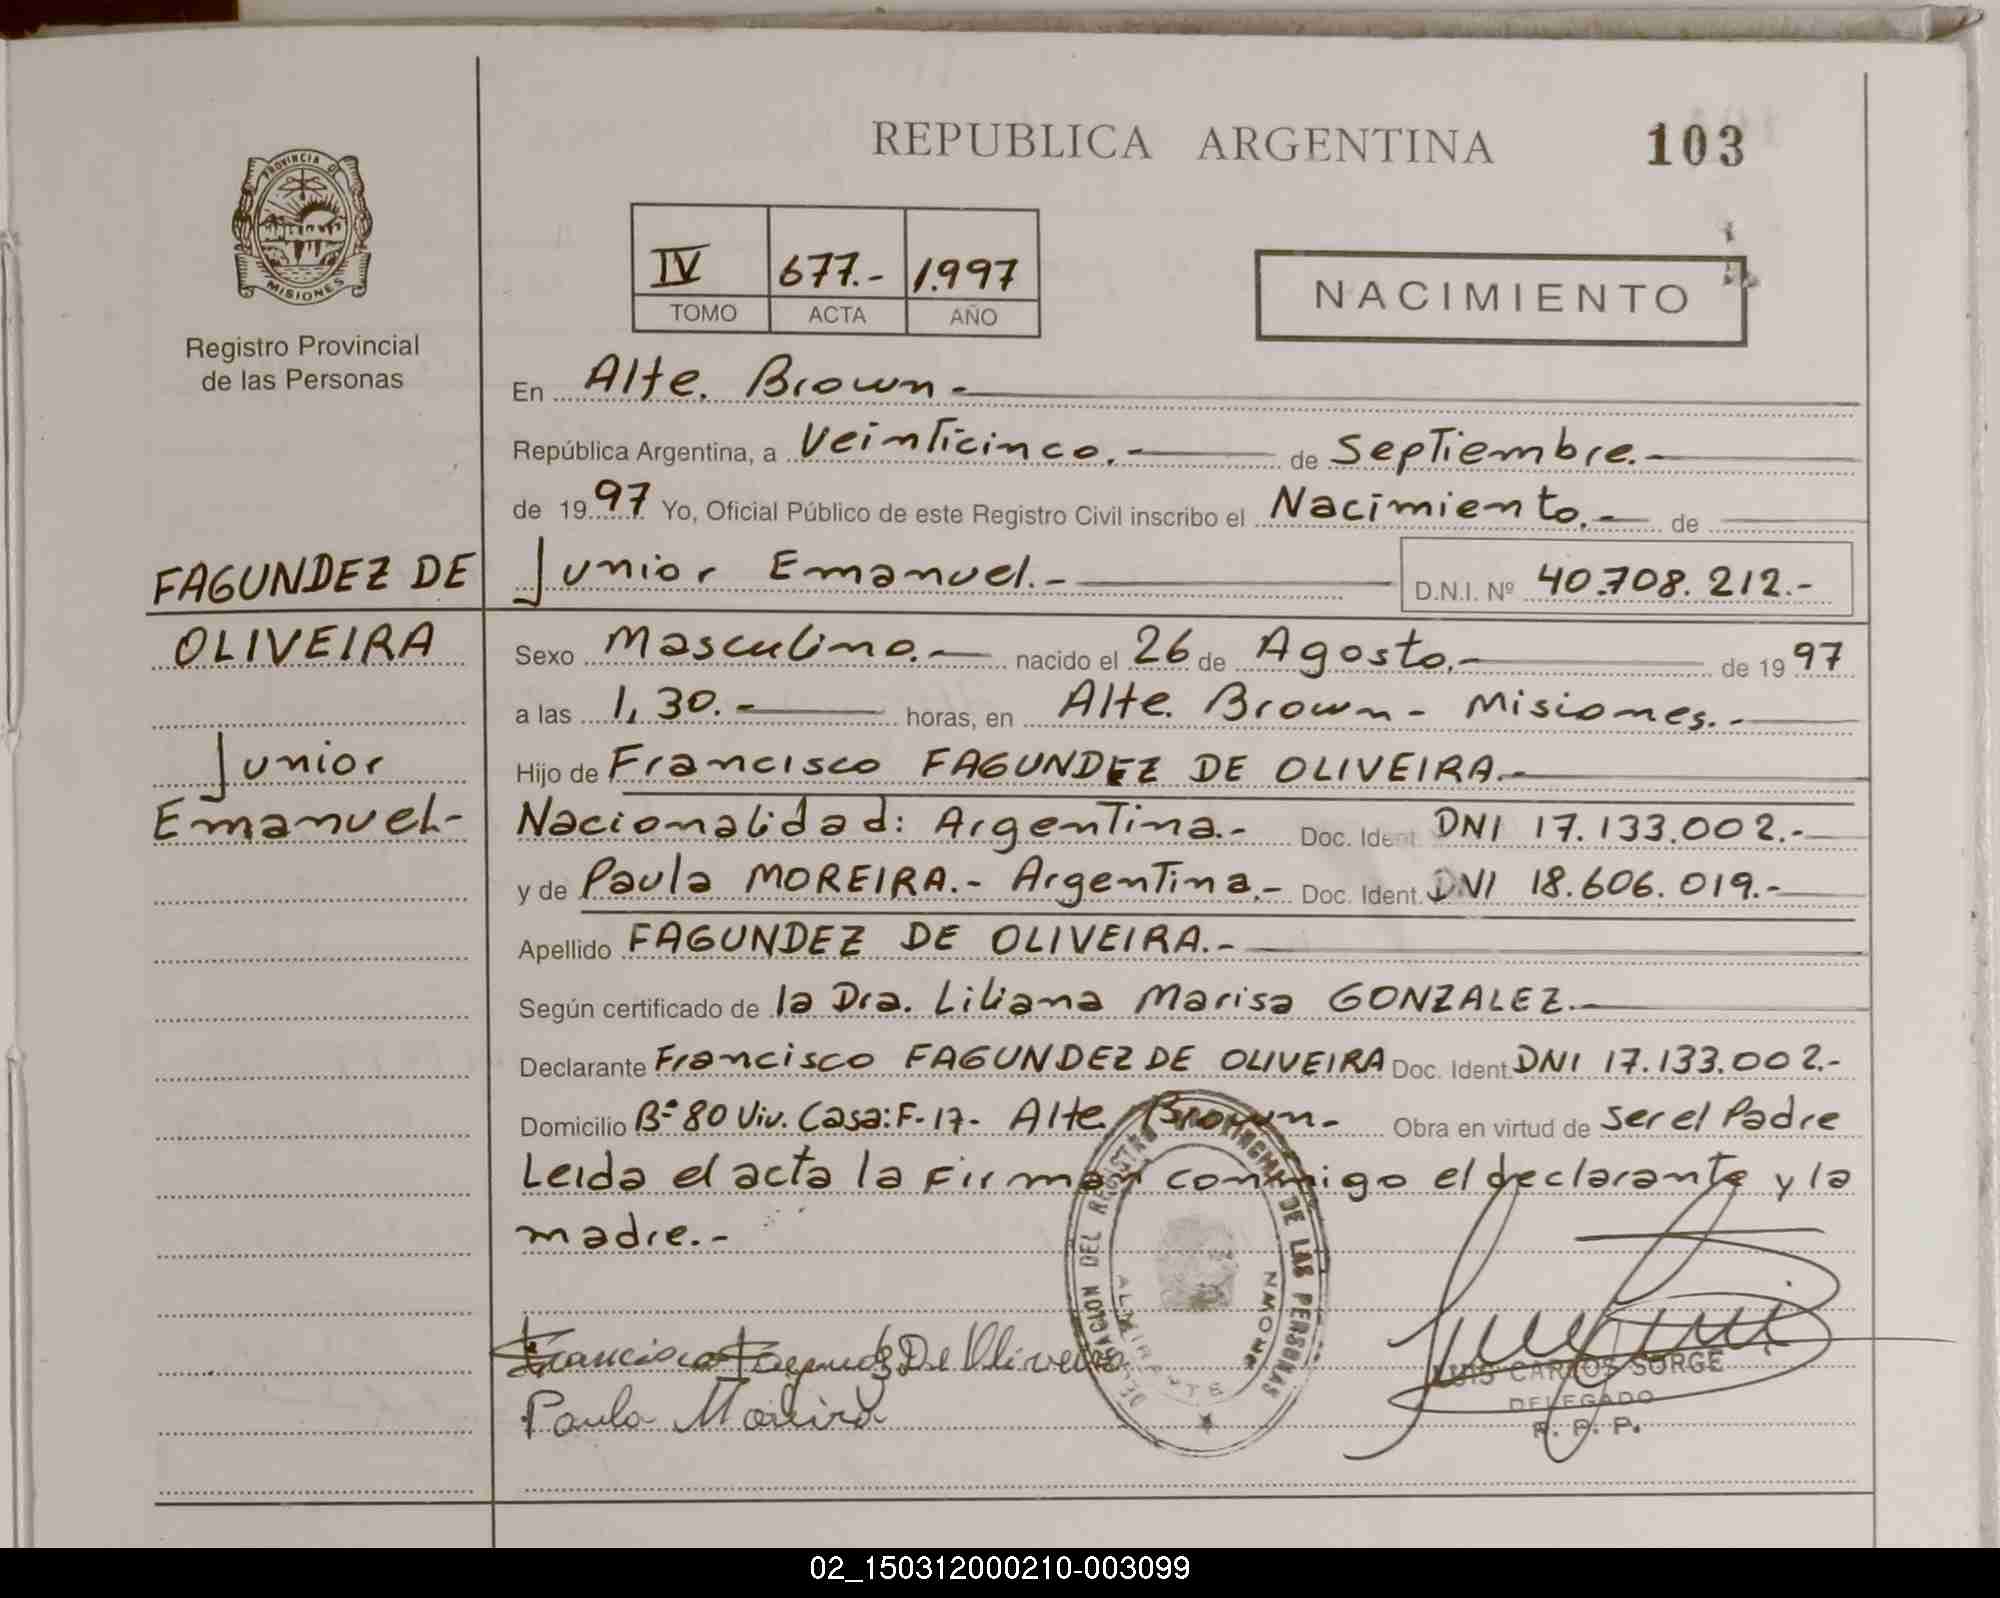 REPUBLICA ARGENTINA
103
PROVINCIA DE
MISIONES
Registro Provincial
de las Personas
IV 677.- 1.997
TOMO ACTA AÑO
NACIMIENTO
En Alte. Brown-
República Argentina, a Veinticinco.- de Septiembre.-
de 1997 Yo, Oficial Público de este Registro Civil inscribo el Nacimiento.- de
FAGUNDEZ DE
OLIVEIRA
Junior
Emanuel-
Junior Emanuel.- D.N.I. Nº 40.708.212.-
Sexo Masculino.- nacido el 26 de Agosto.- de 1997
a las 1,30.- horas, en Alte. Brown- Misiones.-
Hijo de Francisco FAGUNDEZ DE OLIVEIRA.-
Nacionalidad: Argentina.- Doc. Ident. DNI 17.133.002.-
y de Paula MOREIRA.- Argentina.- Doc. Ident. DNI 18.606.019.-
Apellido FAGUNDEZ DE OLIVEIRA.-
Según certificado de la Dra. Liliana Marisa GONZALEZ.-
Declarante Francisco FAGUNDEZ DE OLIVEIRA Doc. Ident. DNI 17.133.002.-
Domicilio Bº 80 Viv. Casa: F-17- Alte. Brown.- Obra en virtud de ser el Padre
Leida el acta la Firman conmigo el declarante y la
madre.-
Francisco Fagundez De Oliveira
Paula Moreira
DELEGACION DEL REGISTRO PROVINCIAL DE LAS PERSONAS
ALMIRANTE BROWN
LUIS CARLOS SORGE
DELEGADO
R. P. P.
02_150312000210-003099